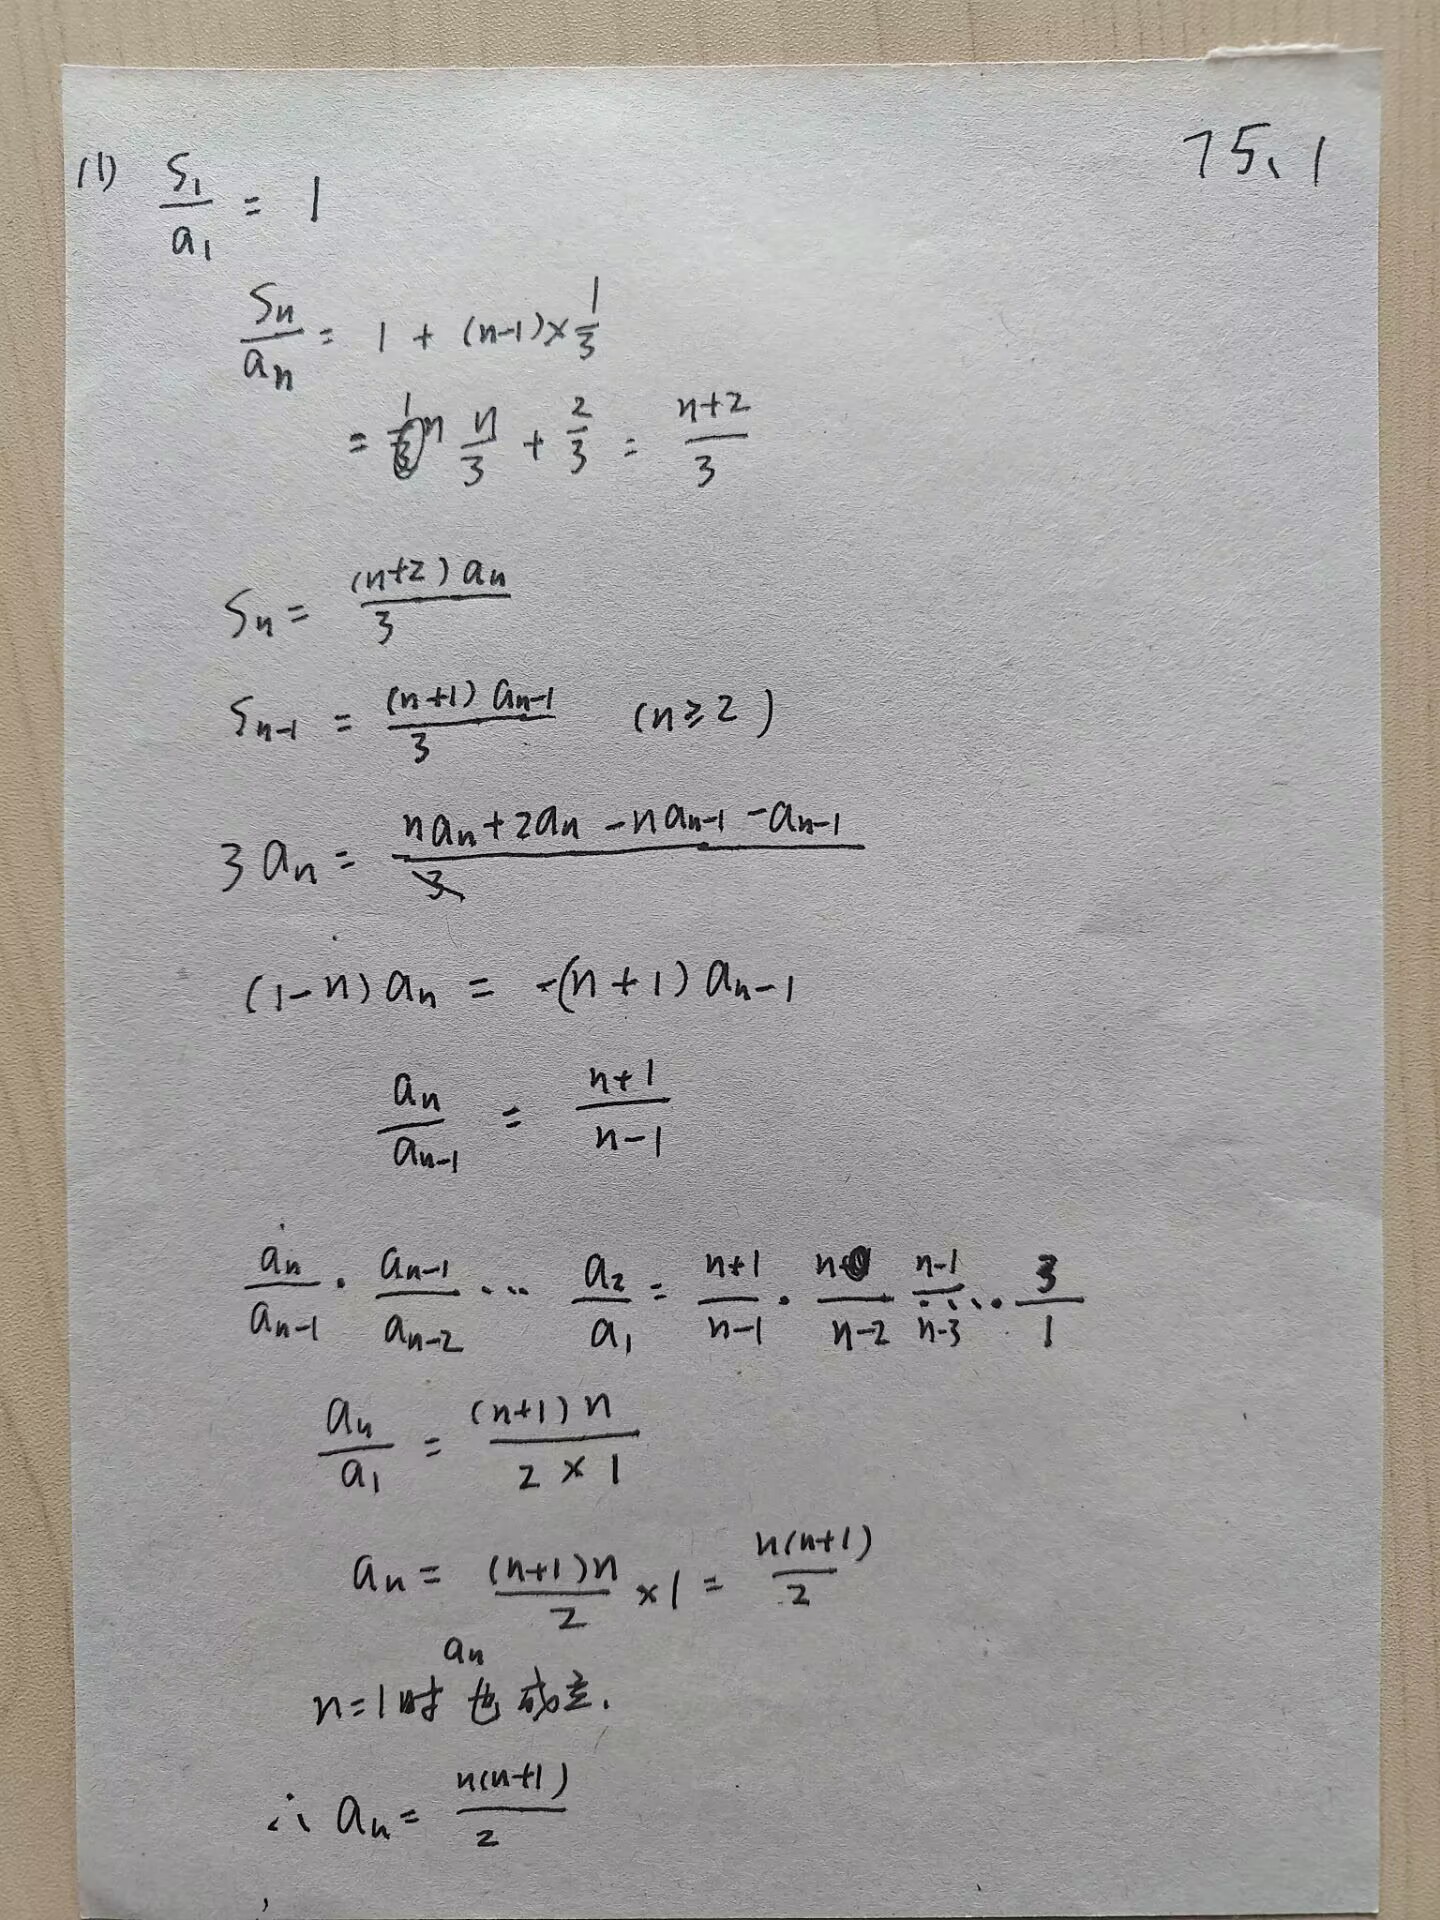 75、1
(1) S₁/a₁ = 1
Sn/an = 1 + (n-1)×1/3
= n/3 + 2/3 = (n+2)/3
Sn = (n+2)an/3
Sn-1 = (n+1)an-1/3 (n≥2)
3an = nan+2an-nan-1-an-1
(1-n)an = -(n+1)an-1
an/an-1 = (n+1)/(n-1)
an/an-1 · an-1/an-2 ··· a₂/a₁ = (n+1)/(n-1) · n/(n-2) (n-1)/(n-3) ··· 3/1
an/a₁ = (n+1)n/(2×1)
an = (n+1)n/2 ×1 = n(n+1)/2
an
n=1时也成立.
∴ an = n(n+1)/2